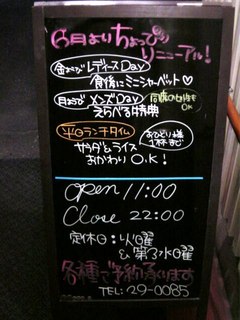 6月よりちょっぴり
リニューアル!
金よるび レディースDay
食後にミニシャーベット♡
月よるび メンズDay 同席の女性もOK
えらべる特典
平日ランチタイム おひとり様1杯まで
サラダとライス
おかわりO.K!
Open 11:00
Close 22:00
定休日:火曜
&第3水曜
各種ご予約承ります
TEL:29-0085